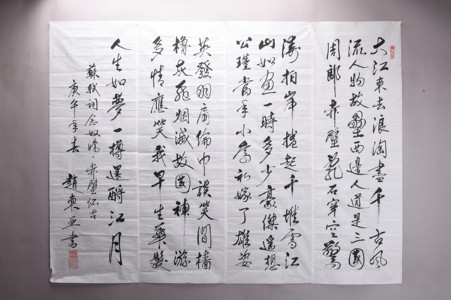 大江東去浪淘盡千古風
流人物故壘西邊人道是三國
周郎赤壁亂石穿空驚
濤拍岸捲起千堆雪江
山如畫一時多少豪傑遙想
公瑾當年小喬初嫁了雄姿
英發羽扇綸巾談笑間檣
櫓灰飛煙滅故國神游
多情應笑我早生華髮
人生如夢一樽還酹江月
蘇軾詞念奴嬌·赤壁懷古
庚午年春 趙東書